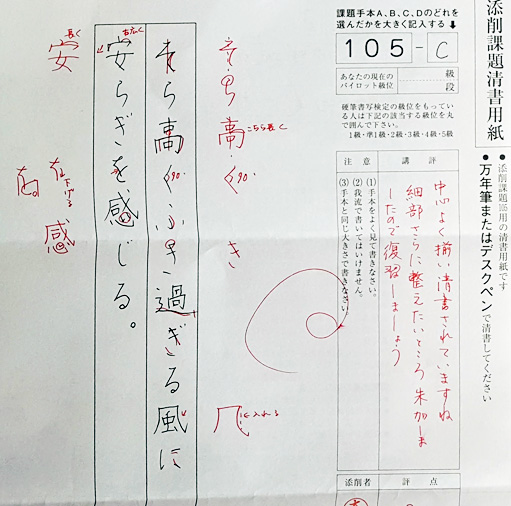 添削課題清書用紙
● 添削課題105用の清書用紙です
● 万年筆またはデスクペンで清書してください
課題手本A、B、C、Dのどれを
選んだかを大きく記入する
105-C
あなたの現在の
パイロット級位
級
段
硬筆書写検定の級位をもってい
る人は下記の該当する級位を丸
で囲んで下さい。
1級・準1級・2級・3級・4級・5級
講評
中心よく揃い清書されていますね
細部さらに整えたいところ朱加しま
したので復習しましょう
注意
(1) 手本をよく見て書きなさい。
(2) 我流で書いてはいけません。
(3) 手本と同じ大きさで書きなさい
評点
添削者
高
こちら長く
く
90°
き
入れる
青ら高くふき過ぎる風に
90°
安らぎを感じる。
広く
長く
安
感
下げる
右